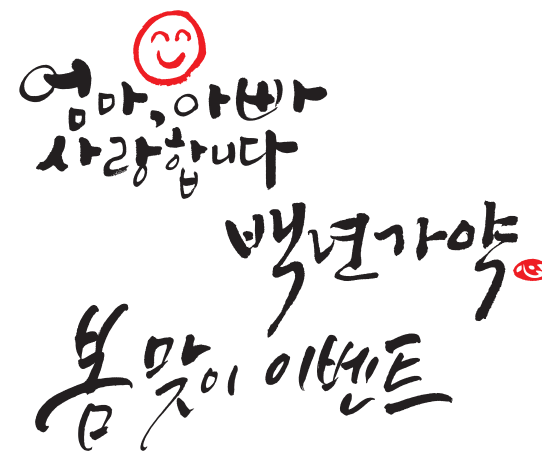 엄마, 아빠
사랑합니다
백년가약
봄 맞이 이벤트